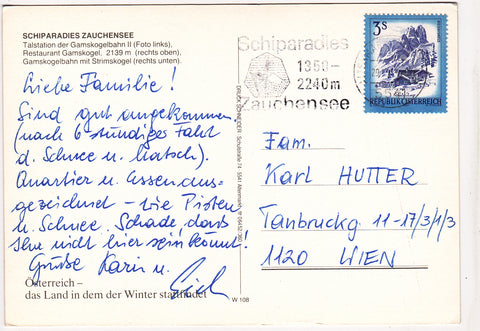 SCHIPARADIES ZAUCHENSEE
Talstation der Gamskogelbahn II (Foto links),
Restaurant Gamskogel, 2139 m (rechts oben),
Gamskogelbahn mit Strimskogel (rechts unten).
Liebe Familie!
Sind gut angekommen.
(nach 6 stündiger Fahrt
d. Schnee u. Matsch).
Quartier u. Essen aus-
gezeichnet – wie Pisten
u. Schnee. Schade, dass
Ihr nicht hier sein könnt.
Grüße Karin u. Erich
Österreich –
das Land in dem der Winter stattfindet
W 108
Schiparadies
1350-
2240m
Zauchensee
3s
REPUBLIK ÖSTERREICH
Fam.
Karl HUTTER
Tanbruckg 11-17/3/1/3
1120 WIEN